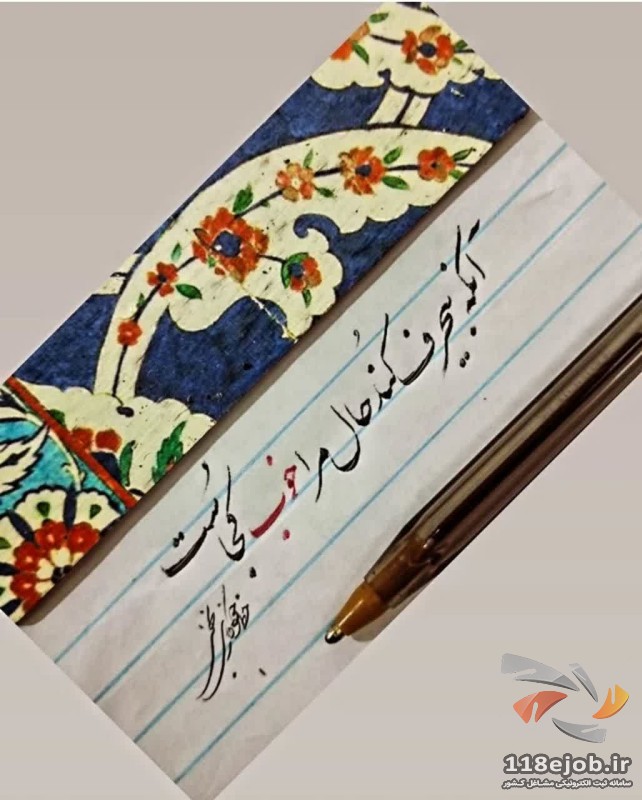 آنکه بیحرف کند حال مرا خوب کجاست
118ejob.ir
سامانه ثبت الکترونیکی مشاغل کشور